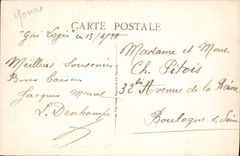 Yonne
CARTE POSTALE
"Gai Logis" ce 13/8/
Meilleurs Souvenirs
Bons Baisers
Jacques
L. Deschamps
Madame et Mons.
Ch. Pitois
32 bis Avenue de la Reine
Boulogne s. Seine